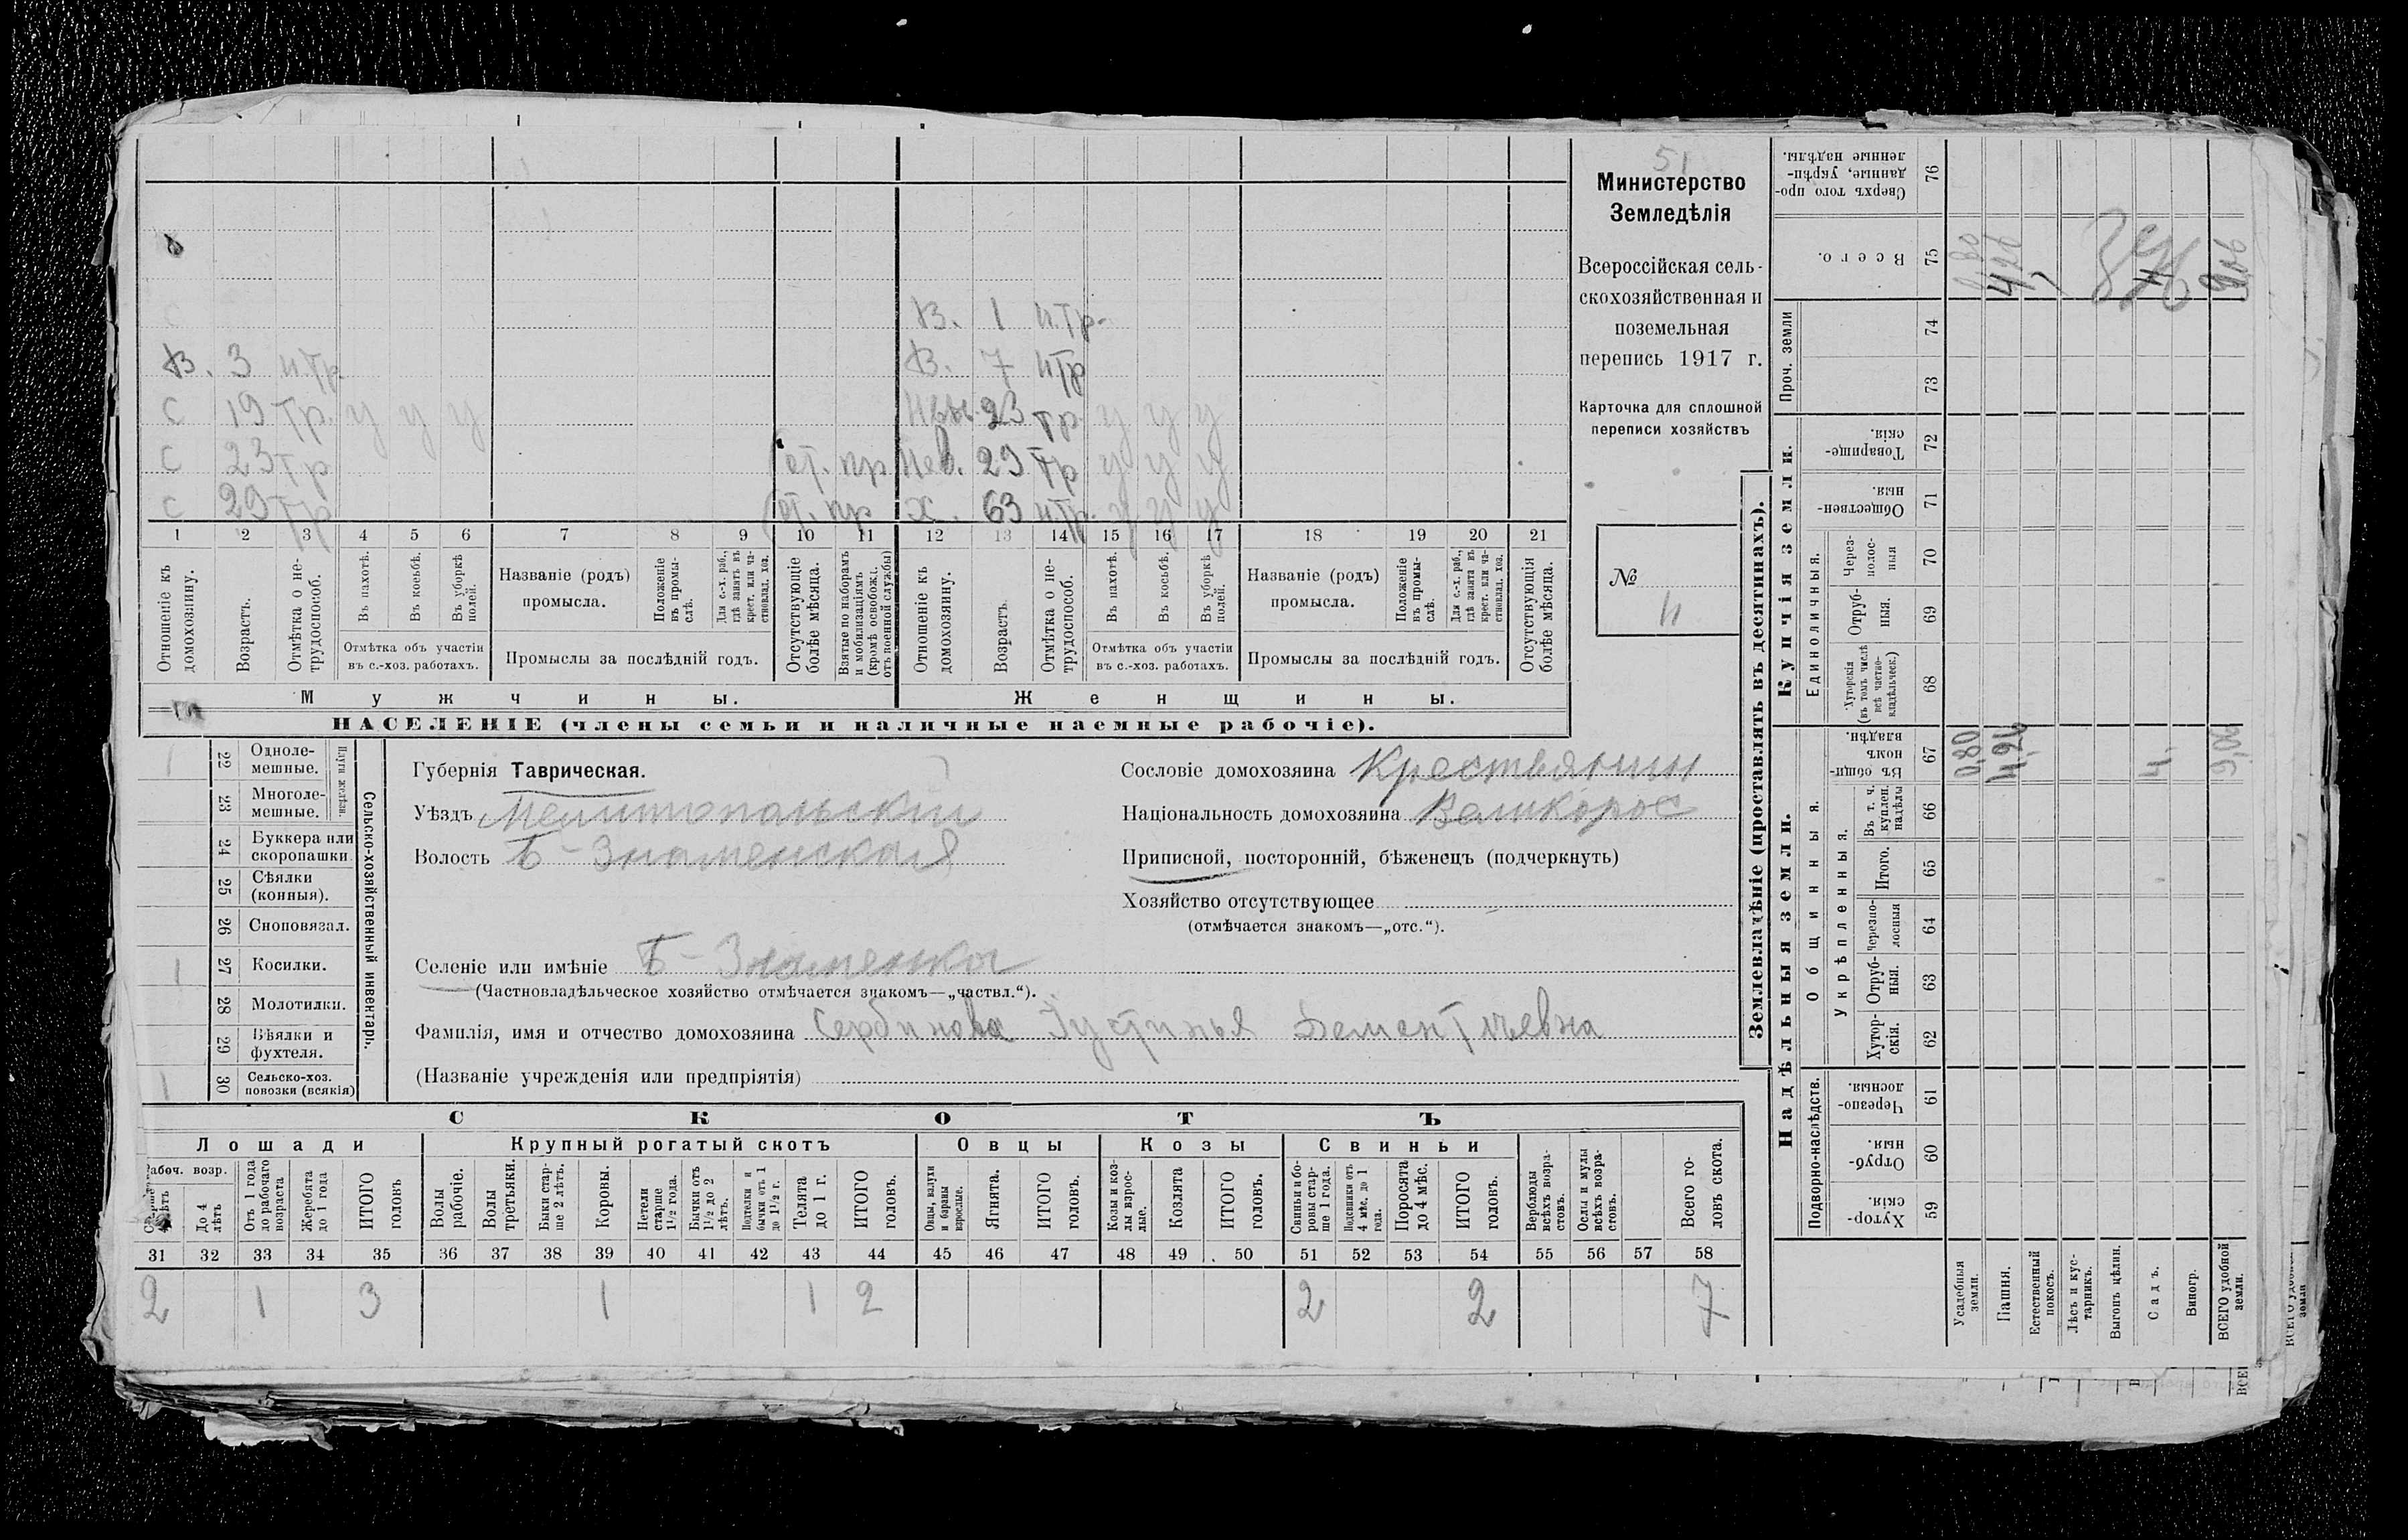 51
Министерство
Земледѣлія
Всероссійская сель-
скохозяйственная и
поземельная
перепись 1917 г.
Карточка для сплошной
переписи хозяйствъ
№
11
В. 1 н.тр.
В. 3 н.тр. В. 7 н.тр
С 19 тр. у у у 23 тр. у у у
С 23 тр от. пр нев. 29 тр у у у
С 29 тр от. пр х. 63 н.тр. у у у
1 2 3 4 5 6 7 8 9 10 11 12 13 14 15 16 17 18 19 20 21
Отношеніе къ домохозяину.
Возрастъ.
Отмѣтка о не-трудоспособ.
Въ пахотѣ.
Въ косьбѣ.
Въ уборкѣ полей.
Отмѣтка объ участіи въ с.-хоз. работахъ.
Названіе (родъ) промысла.
Положеніе въ промы-слѣ.
Для с.-х. раб., гдѣ занятъ въ крест. или ча-стновлад. хоз.
Промыслы за послѣдній годъ.
Отсутствующіе болѣе мѣсяца.
Взятые по наборамъ и мобилизаціямъ (кромѣ освобожд. отъ военной службы)
Отношеніе къ домохозяину.
Возрастъ.
Отмѣтка о не-трудоспособ.
Въ пахотѣ.
Въ косьбѣ.
Въ уборкѣ полей.
Отмѣтка объ участіи въ с.-хоз. работахъ.
Названіе (родъ) промысла.
Положеніе въ промы-слѣ.
Для с.-х. раб., гдѣ занята въ крест. или ча-стновлад. хоз.
Промыслы за послѣдній годъ.
Отсутствующія болѣе мѣсяца.
Мужчины. Женщины.
НАСЕЛЕНІЕ (члены семьи и наличные наемные рабочіе).
Сельско-хозяйственный инвентарь.
Плуги желѣзн.
1 22 Одноле-мешные.
23 Многоле-мешные.
24 Буккера или скоропашки
25 Сѣялки (конныя).
26 Сноповязал.
1 27 Косилки.
28 Молотилки.
29 Вѣялки и фухтеля.
1 30 Сельско-хоз. повозки (всякія)
Губернія Таврическая.
Уѣздъ Мелитопольскій
Волость Б-Знаменская
Селеніе или имѣніе Б-Знаменка
(Частновладѣльческое хозяйство отмѣчается знакомъ—„частвл.“).
Фамилія, имя и отчество домохозяина Сербинова Iустинья Дементьевна
(Названіе учрежденія или предпріятія)
Сословіе домохозяина Крестьянин
Національность домохозяина Великорос
Приписной, посторонній, бѣженецъ (подчеркнуть)
Хозяйство отсутствующее
(отмѣчается знакомъ—„отс.“).
СКОТЪ
Лошади Крупный рогатый скотъ Овцы Козы Свиньи
Рабоч. возр.
До 4 лѣтъ
Отъ 1 года до рабочаго возраста
Жеребята до 1 года
ИТОГО головъ
Волы рабочіе.
Волы третьяки.
Быки стар-ше 2 лѣтъ.
Коровы.
Нетели старше 1½ года.
Бычки отъ 1½ до 2 лѣтъ.
Подтелки и бычки отъ 1 до 1½ г.
Телята до 1 г.
ИТОГО головъ.
Овцы, валухи и бараны взрослые.
Ягнята.
ИТОГО головъ.
Козы и коз-лы взрос-лые.
Козлята
ИТОГО головъ.
Свиньи и бо-ровы стар-ше 1 года.
Подсвинки отъ 4 мѣс. до 1 года.
Поросята до 4 мѣс.
ИТОГО головъ.
Верблюды всѣхъ возра-стовъ.
Ослы и мулы всѣхъ возра-стовъ.
Всего го-ловъ скота.
31 32 33 34 35 36 37 38 39 40 41 42 43 44 45 46 47 48 49 50 51 52 53 54 55 56 57 58
2 1 3 1 1 2 2 2 7
Землевладѣніе (проставлять въ десятинахъ).
Надѣльныя земли. Купчія земли.
Подворно-наслѣдств.
Общинныя.
Укрѣпленныя.
Единоличныя.
Проч. земли
Сверхъ того про-данные, укрѣп-ленные надѣлы. 76
Всего. 75 4,26
74
73
Товарище-скія. 72
Обществен-ныя. 71
Через-полос-ныя 70
Отруб-ныя. 69
Хуторскія (въ томъ числѣ всѣ частно-владѣльческ.) 68
Въ общин-номъ владѣн. 67 0,80 4,26 4, 9,06
Въ т. ч. куплен. надѣлы 66
Итого. 65
Черезпо-лосныя 64
Отруб-ныя. 63
Хутор-скія. 62
Черезпо-лосныя. 61
Отруб-ныя. 60
Хутор-скія. 59
Усадебныя земли.
Пашня.
Естественный покосъ.
Лѣсъ и кус-тарникъ.
Выгонъ цѣлин.
Садъ.
Виногр.
ВСЕГО удобной земли.